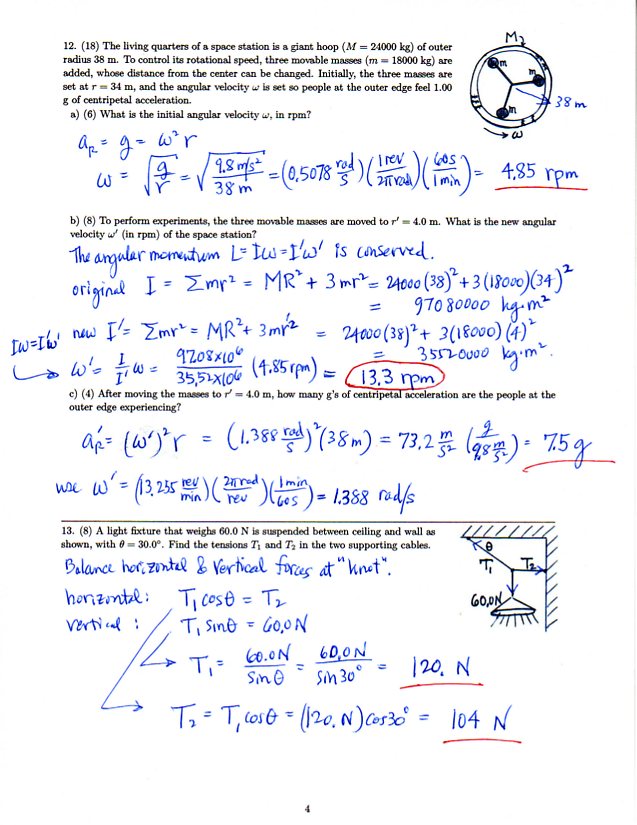 12. (18) The living quarters of a space station is a giant hoop (M = 24000 kg) of outer
radius 38 m. To control its rotational speed, three movable masses (m = 18000 kg) are
added, whose distance from the center can be changed. Initially, the three masses are
set at r = 34 m, and the angular velocity ω is set so people at the outer edge feel 1.00
g of centripetal acceleration.
M
m
m
m
38 m
ω
a) (6) What is the initial angular velocity ω, in rpm?
a_R = g = ω² r
ω = √(g/r) = √(9.8 m/s² / 38 m) = (0.5078 rad/s)(1 rev/2π rad)(60s/1 min) = 4.85 rpm
b) (8) To perform experiments, the three movable masses are moved to r′ = 4.0 m. What is the new angular
velocity ω′ (in rpm) of the space station?
The angular momentum L = Iω = I′ω′ is conserved.
original I = Σmr² = MR² + 3mr² = 24000(38)² + 3(18000)(34)²
= 97080000 kg·m²
Iω=I′ω′ new I′ = Σmr² = MR² + 3mr′² = 24000(38)² + 3(18000)(4)²
= 35520000 kg·m².
ω′ = I/I′ ω = 97.08×10⁶/35.52×10⁶ (4.85 rpm) = 13.3 rpm
c) (4) After moving the masses to r′ = 4.0 m, how many g's of centripetal acceleration are the people at the
outer edge experiencing?
a′_R = (ω′)² r = (1.388 rad/s)² (38m) = 73.2 m/s² (g/9.8 m/s²) = 7.5 g
use ω′ = (13.255 rev/min)(2π rad/rev)(1 min/60s) = 1.388 rad/s
13. (8) A light fixture that weighs 60.0 N is suspended between ceiling and wall as
shown, with θ = 30.0°. Find the tensions T₁ and T₂ in the two supporting cables.
θ
T₁
T₂
60.0N
Balance horizontal & vertical forces at "knot".
horizontal: T₁ cosθ = T₂
vertical : T₁ sinθ = 60.0N
T₁ = 60.0N/sinθ = 60.0N/sin30° = 120. N
T₂ = T₁cosθ = (120. N)cos30° = 104 N
4